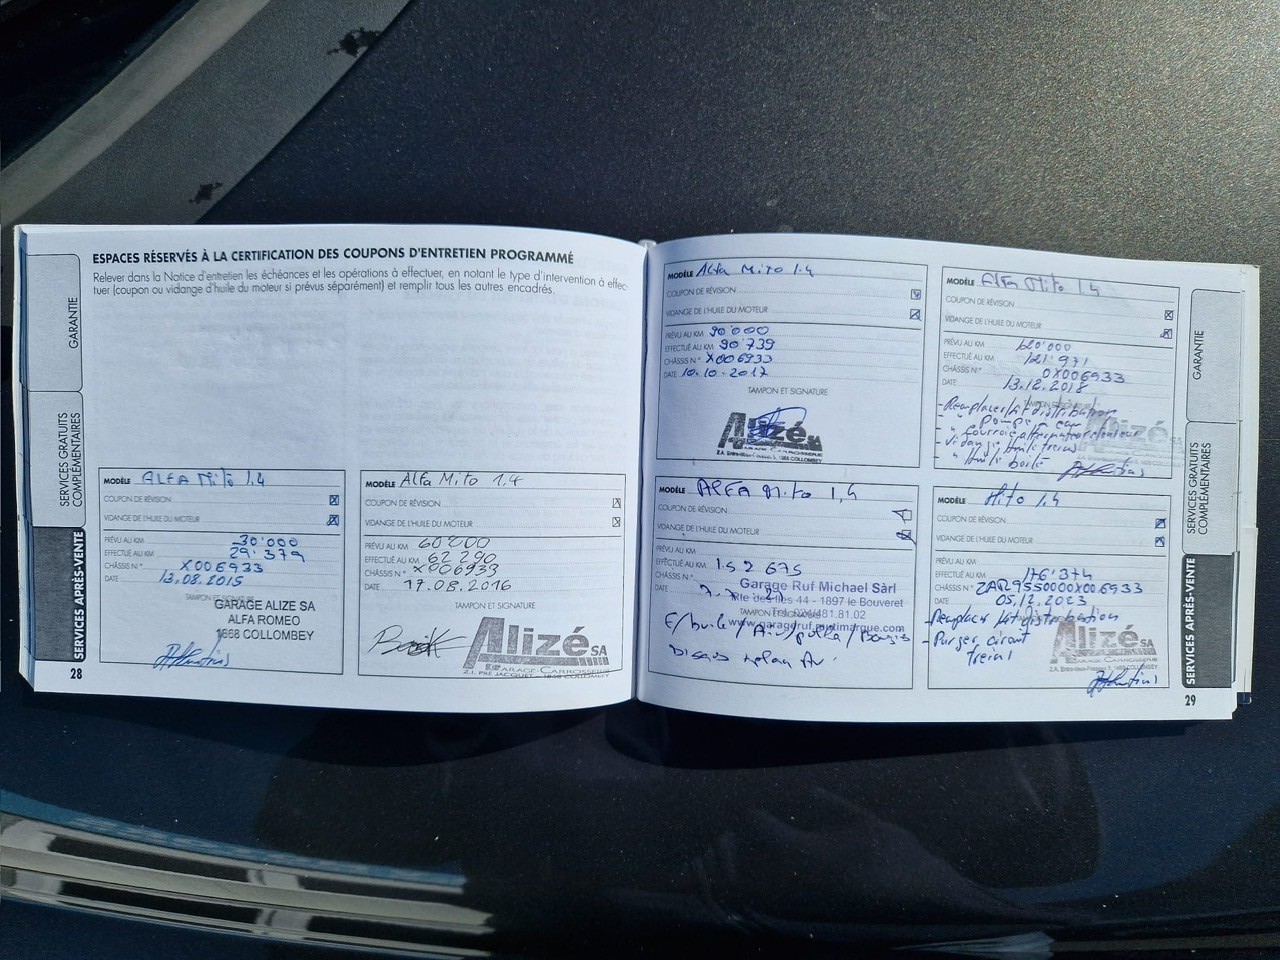 ESPACES RÉSERVÉS À LA CERTIFICATION DES COUPONS D'ENTRETIEN PROGRAMMÉ
Relever dans la Notice d'entretien les échéances et les opérations à effectuer, en notant le type d'intervention à effec-
tuer (coupon ou vidange d'huile du moteur si prévus séparément) et remplir tous les autres encadrés.
GARANTIE
SERVICES GRATUITS
COMPLÉMENTAIRES
SERVICES APRÈS-VENTE
MODÈLE ALFA Mito 1.4
COUPON DE RÉVISION
VIDANGE DE L'HUILE DU MOTEUR
PRÉVU AU KM 30'000
EFFECTUÉ AU KM 29'379
CHÂSSIS N° X006933
DATE 13.08.2015
TAMPON ET SIGNATURE
GARAGE ALIZE SA
ALFA ROMEO
1868 COLLOMBEY
28
MODÈLE Alfa Mito 1.4
COUPON DE RÉVISION
VIDANGE DE L'HUILE DU MOTEUR
PRÉVU AU KM 60'000
EFFECTUÉ AU KM 62'290
CHÂSSIS N° X006933
DATE 17.08.2016
TAMPON ET SIGNATURE
Alizé SA
GARAGE-CARROSSERIE
Z.I. PRE JACQUET - 1868 COLLOMBEY
MODÈLE Alfa Mito 1.4
COUPON DE RÉVISION
VIDANGE DE L'HUILE DU MOTEUR
PRÉVU AU KM 90'000
EFFECTUÉ AU KM 90'739
CHÂSSIS N° X006933
DATE 10.10.2017
TAMPON ET SIGNATURE
Alizé SA
GARAGE-CARROSSERIE
1868 COLLOMBEY
MODÈLE Alfa Mito 1.4
COUPON DE RÉVISION
VIDANGE DE L'HUILE DU MOTEUR
PRÉVU AU KM 120'000
EFFECTUÉ AU KM 121'971
CHÂSSIS N° 0X006933
DATE 13.12.2018
- Remplacer kit distribution
- " pompe à eau
- " courroie alternateur
- Vidange huile freins
- " huile boîte
Alizé
MODÈLE ALFA Mito 1.4
COUPON DE RÉVISION
VIDANGE DE L'HUILE DU MOTEUR
PRÉVU AU KM
EFFECTUÉ AU KM 152 675
CHÂSSIS N°
DATE
Garage Ruf Michael Sàrl
Rte des Iles 44 - 1897 le Bouveret
Tel. 024/481.81.02
TAMPON ET SIGNATURE
www.garageruf.multimarque.com
E/huile / Air / pollen / Bougis
MODÈLE Mito 1.4
COUPON DE RÉVISION
VIDANGE DE L'HUILE DU MOTEUR
PRÉVU AU KM
EFFECTUÉ AU KM 176'374
CHÂSSIS N° ZAR9550000X006933
DATE 05.12.2023
- Remplacer kit distribution
- Purger circuit
freins
Alizé SA
GARANTIE
SERVICES GRATUITS
COMPLÉMENTAIRES
SERVICES APRÈS-VENTE
29